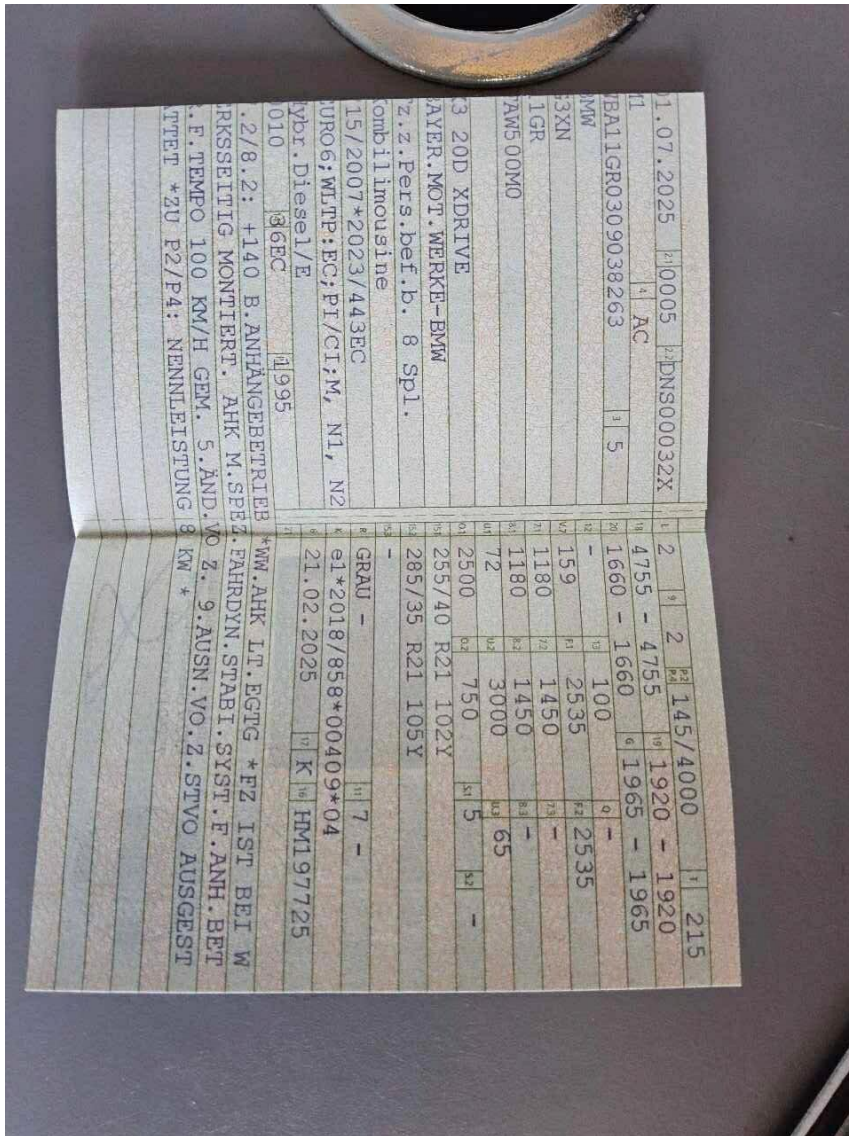 01.07.2025 2.1 0005 2.2 DNS00032X
M1 4 AC
WBA11GR0309038263 3 5
BMW
G3XN
11GR
7AW500M0
X3 20D XDRIVE
BAYER.MOT.WERKE-BMW
Fz.z.Pers.bef.b. 8 Spl.
Kombilimousine
715/2007*2023/443EC
EURO6;WLTP:EC;PI/CI;M, N1, N2
Hybr.Diesel/E
0010 36EC 1995
L 2 9 2 P.2 P.4 145/4000 T 215
18 4755 - 4755 19 1920 - 1920
20 1660 - 1660 G 1965 - 1965
12 - 13 100 Q -
V.7 159 F.1 2535 F.2 2535
7.1 1180 7.2 1450 7.3 -
8.1 1180 8.2 1450 8.3 -
U.1 72 U.2 3000 U.3 65
O.1 2500 O.2 750 S.1 5 S.2 -
15.1 255/40 R21 102Y
15.2 285/35 R21 105Y
15.3 -
R GRAU - 11 7 -
K e1*2018/858*00409*04
6 21.02.2025 17 K 16 HM197725
21
.2/8.2: +140 B.ANHÄNGEBETRIEB *WW.AHK LT.EGTG *FZ IST BEI W
ERKSSEITIG MONTIERT. AHK M.SPEZ.FAHRDYN.STABI.SYST.F.ANH.BET
R.F.TEMPO 100 KM/H GEM. 5.ÄND.VO Z. 9.AUSN.VO.Z.STVO AUSGEST
ATTET *ZU P2/P4: NENNLEISTUNG 8 KW *